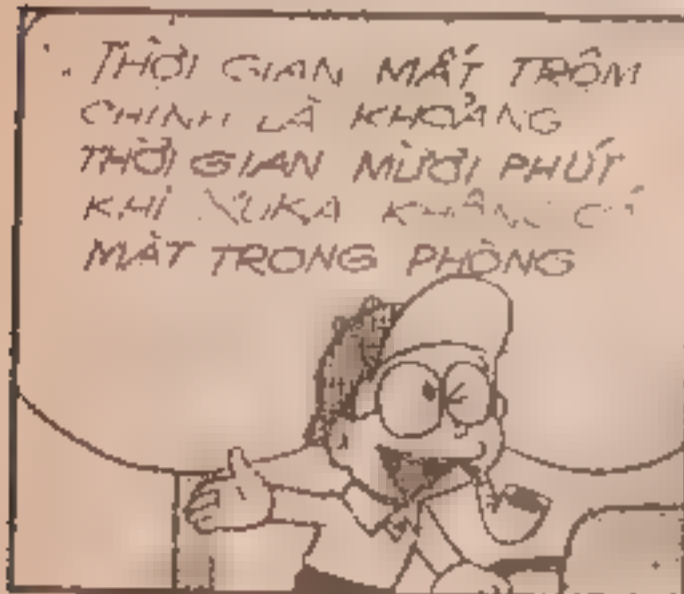 THỜI GIAN MẤT TRỘM
CHÍNH LÀ KHOẢNG
THỜI GIAN MƯỜI PHÚT
KHI XUKA KHÔNG CÓ
MẶT TRONG PHÒNG